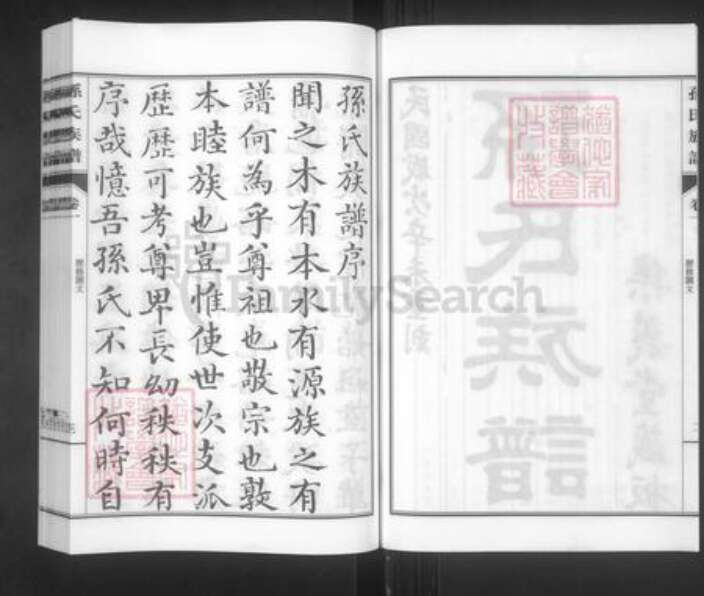 孫氏族譜
卷一
歷修譜文
孫氏族譜序
聞之木有本水有源族之有
譜何為乎尊祖也敬宗也敦
本睦族也豈惟使世次支派
歷歷可考尊卑長幼秩秩有
序哉憶吾孫氏不知何時自
孫氏族譜
卷一
FamilySearch